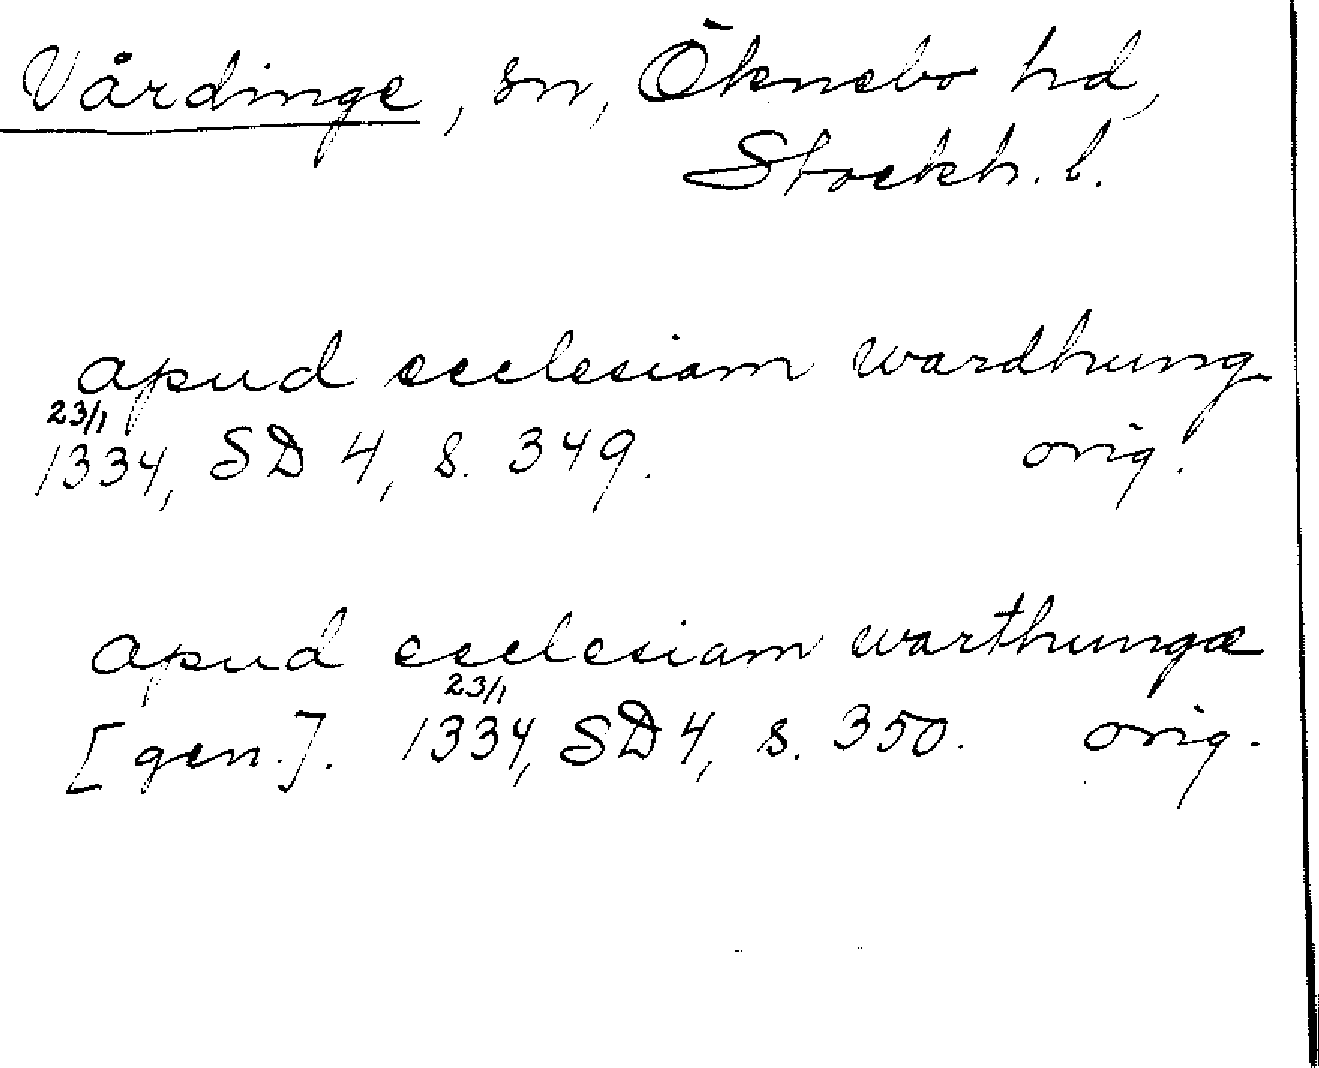 Vårdinge, sn, Öknebo hd,
Stockh. l.
apud ecclesiam wardhung
23/1
1334, SD 4, s. 349. orig.
apud ecclesiam warthungæ
23/1
[gen.]. 1334, SD 4, s. 350. orig.